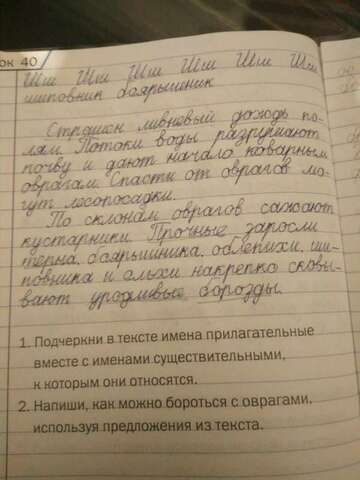 ок 40
Шш Шш Шш Шш Шш Шш
шиповник боярышник
Страшен ливневый дождь по-
лям. Потоки воды разрушают
почву и дают начало коварным
оврагам. Спасти от оврагов мо-
гут лесопосадки.
По склонам оврагов сажают
кустарники. Прочные заросли
тёрна, боярышника, облепихи, ши-
повника и ольхи накрепко сковы-
вают уродливые борозды.
1. Подчеркни в тексте имена прилагательные
вместе с именами существительными,
к которым они относятся.
2. Напиши, как можно бороться с оврагами,
используя предложения из текста.